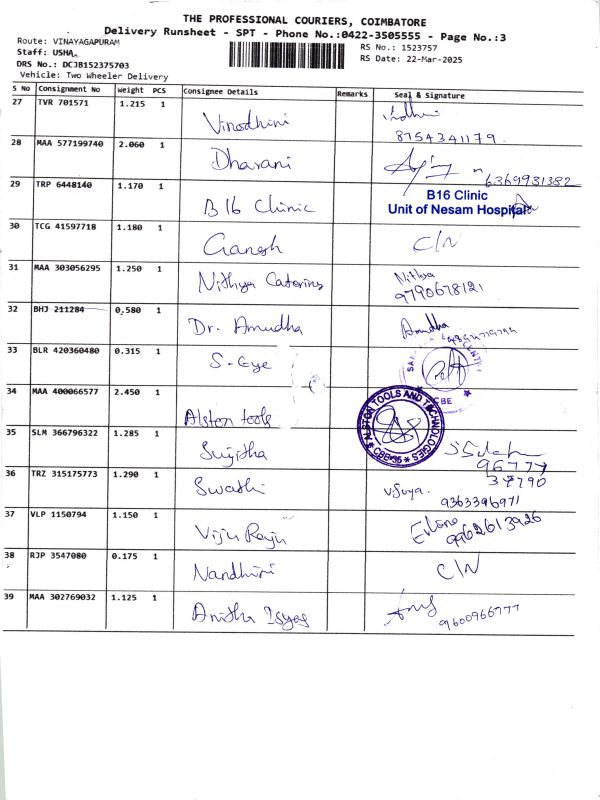 THE PROFESSIONAL COURIERS, COIMBATORE
Delivery Runsheet - SPT - Phone No.:0422-3505555 - Page No.:3
Route: VINAYAGAPURAM
Staff: USHA
DRS No.: DCJB152375703
Vehicle: Two Wheeler Delivery
RS No.: 1523757
RS Date: 22-Mar-2025
S No Consignment No Weight PCS Consignee Details Remarks Seal & Signature
27 TVR 701571 1.215 1 Vinodhini
8754341179
28 MAA 577199740 2.060 1 Dharani
6369931382
29 TRP 6448140 1.170 1 B16 Clinic
B16 Clinic
Unit of Nesam Hospital
30 TCG 41597718 1.180 1 Ganesh C/N
31 MAA 303056295 1.250 1 Nithya Catering Nithya
9790678121
32 BHJ 211284 0.580 1 Dr. Amudha Amudha
33 BLR 420360480 0.315 1 S-Eye
CBE
34 MAA 400066577 2.450 1 Alston tools
ALSTON TOOLS AND TECHNOLOGIES
CBE-35
35 SLM 366796322 1.285 1 Sujitha
96777
37790
36 TRZ 315175773 1.290 1 Swathi
9363396971
37 VLP 1150794 1.150 1 Viju Raju
9962613926
38 RJP 3547080 0.175 1 Nandhini C/N
39 MAA 302769032 1.125 1 Anitha
9600966777